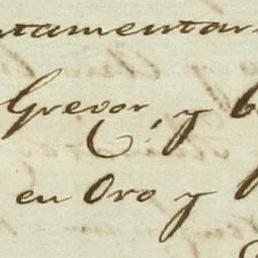 ntamentar
Grevor, y
en Oro y